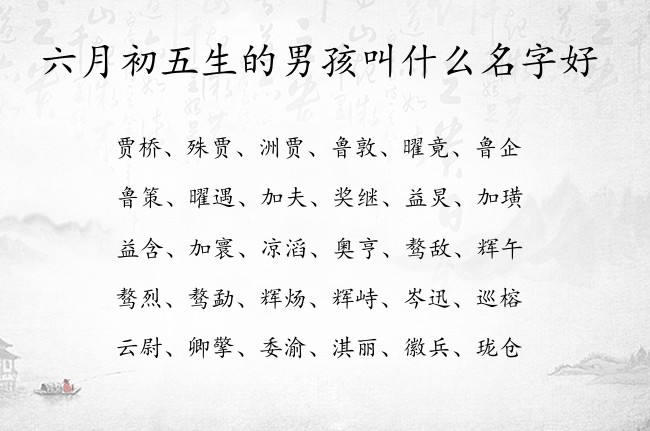 六月初五生的男孩叫什么名字好
贾桥、殊贾、洲贾、鲁敦、曜竟、鲁企
鲁策、曜遇、加夫、奖继、益炅、加璜
益含、加寰、凉滔、奥亨、骜敌、辉午
骜烈、骜勐、辉炀、辉峙、岑迅、巡榕
云尉、卿擎、委渝、淇丽、徽兵、珑仓